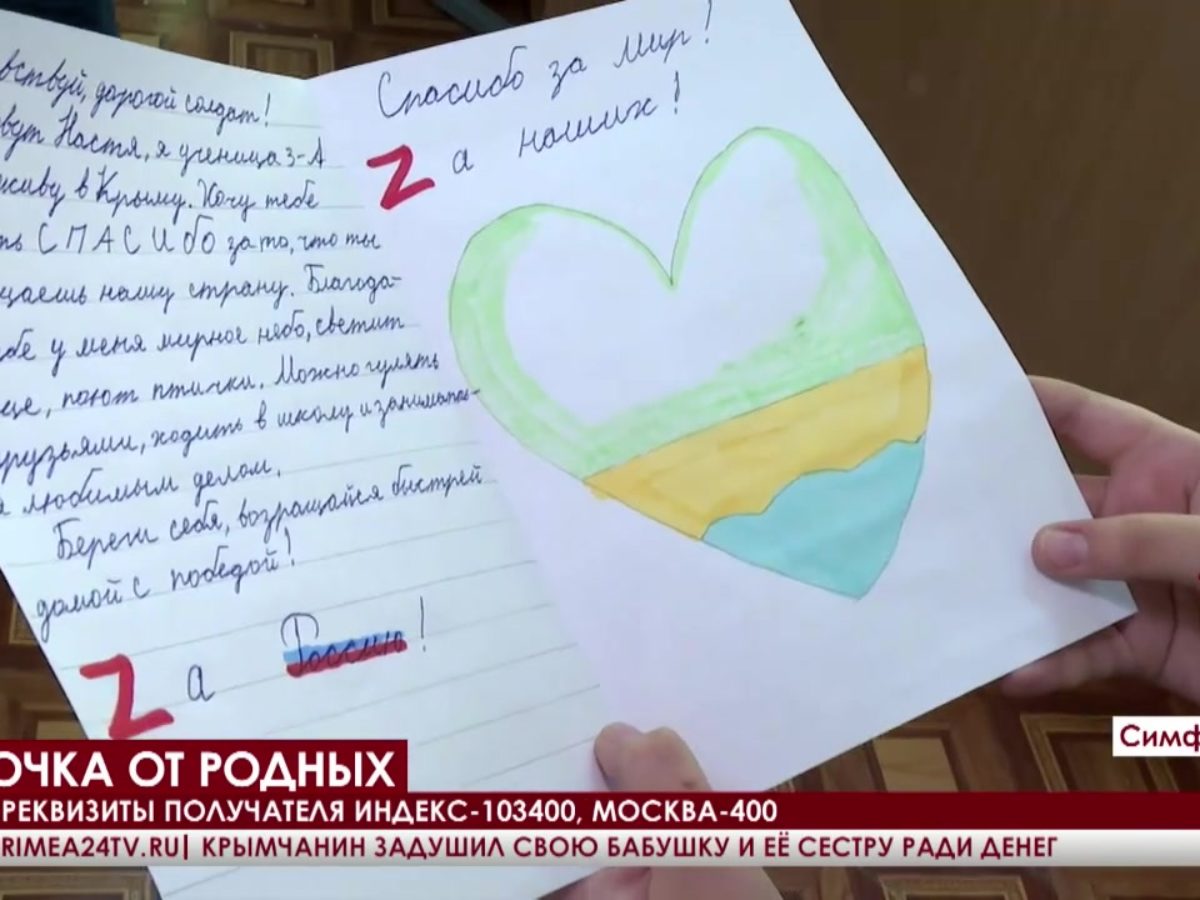 вствуй, дорогой солдат!
вут Настя, я ученица 3-А
живу в Крыму. Хочу тебе
ть СПАСИБО за то, что ты
щаешь нашу страну. Благода-
бе у меня мирное небо, светит
це, поют птички. Можно гулять
рузьями, ходить в школу и занимать-
я любимым делом.
Береги себя, возращайся быстрей
домой с победой!
Zа Россию!
Спасибо за мир!
Zа наших!
Симф
ОЧКА ОТ РОДНЫХ
РЕКВИЗИТЫ ПОЛУЧАТЕЛЯ ИНДЕКС-103400, МОСКВА-400
RIMEA24TV.RU| КРЫМЧАНИН ЗАДУШИЛ СВОЮ БАБУШКУ И ЕЁ СЕСТРУ РАДИ ДЕНЕГ